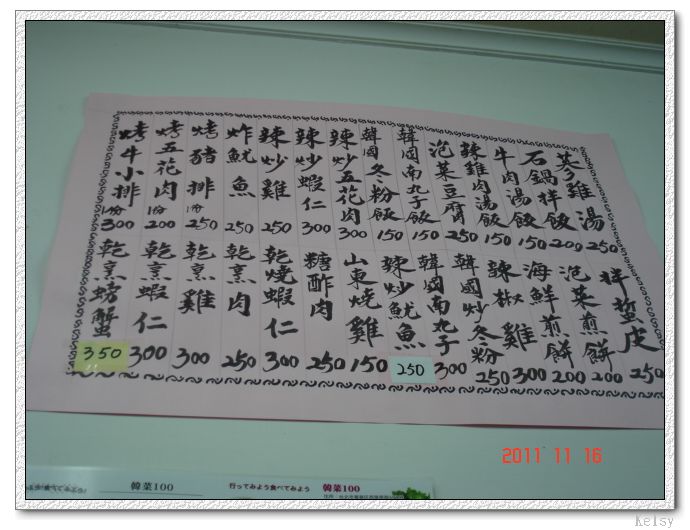 蔘雞湯 250
石鍋拌飯 200
牛肉湯飯 150
辣雞肉湯飯 150
泡菜豆腐 250
韓國南丸子飯 150
韓國冬粉飯 150
辣炒五花肉 300
辣炒蝦仁 300
辣炒雞 250
炸魷魚 250
烤豬排 250
烤五花肉 1份 200
烤牛小排 1份 300
拌蜇皮 250
泡菜煎餅 200
海鮮煎餅 200
辣椒雞 300
韓國炒冬粉 250
韓國南丸子 300
辣炒魷魚 250
山東燒雞 150
糖酢肉 250
乾燒蝦仁 300
乾烹肉 250
乾烹雞 300
乾烹蝦仁 300
乾烹螃蟹 350
2011 11 16
韓菜100 行ってみよう食べてみよう 韓菜100
Kelsy